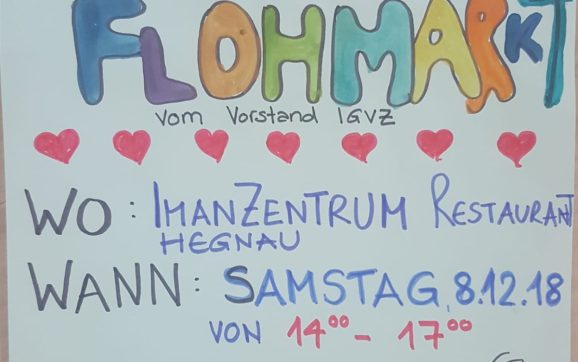 FLOHMARKT
vom Vorstand IGVZ
WO: IMANZENTRUM RESTAURANT
HEGNAU
WANN: SAMSTAG, 8.12.18
VON 14⁰⁰ - 17⁰⁰